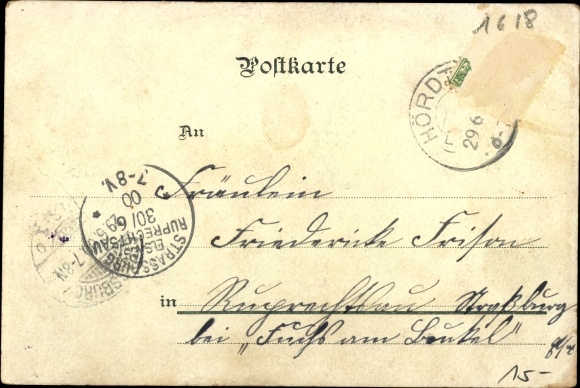 1618
Postkarte
HÖRDT
29 6
An
7-8V.
00
30/6
STRASSBURG
RUPRECHTSAU
ELS
7-8N
Fräulein
Friedericke Frison
in Ruprechtsau Straßburg
bei „Fuchs am Buckel"
15-